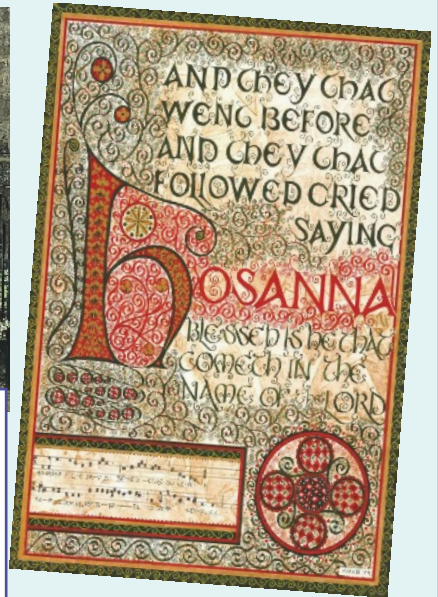 AND THEY THAT
WENT BEFORE
AND THEY THAT
FOLLOWED CRIED
SAYING
HOSANNA
BLESSED IS HE THAT
COMETH IN THE
NAME OF THE LORD